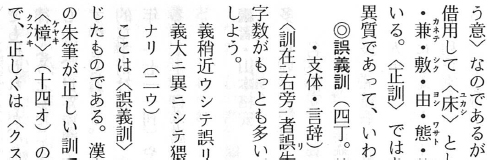 う意〉なのであるが
借用して〈床〉とし
・兼・敷・由・態・
いる。〈正訓〉では
異質であって、いわ
◎誤義訓（四丁。
・支体・言辞）
〈訓在二右旁一者誤
字数がもっとも多い
しよう。
義稍近ウシテ誤リ
義大ニ異ニシテ猥
ナリ（二ウ）
ここは〈誤義訓〉
じたものである。漢
の朱筆が正しい訓
〈樟〉（十四オ）の
で、正しくは〈クス